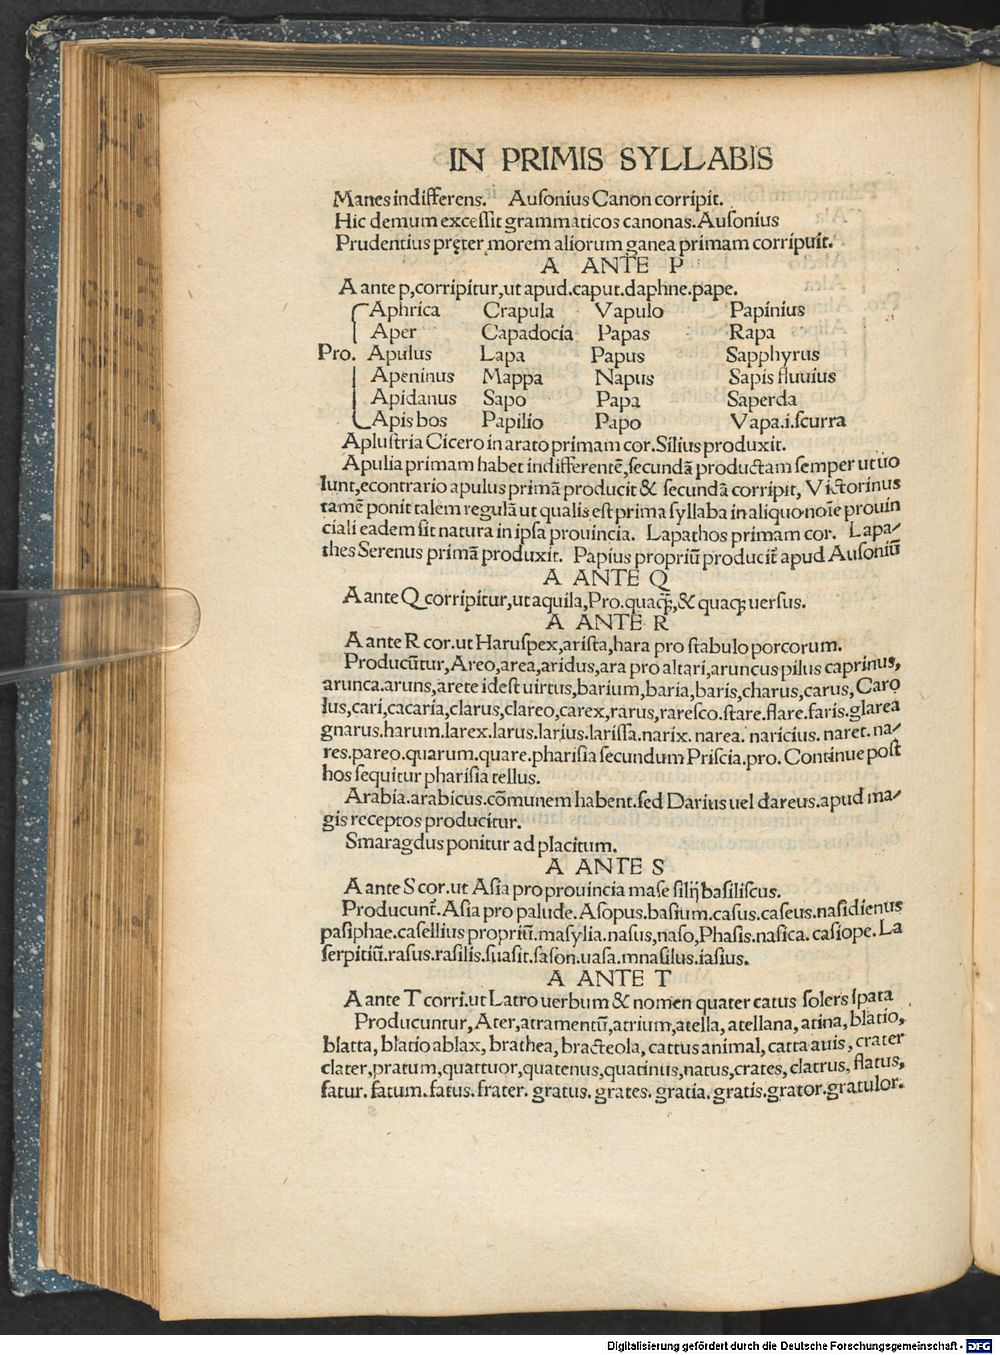 IN PRIMIS SYLLABIS
Manes indifferens. Ausonius Canon corripit.
Hic demum excessit grammaticos canonas. Ausonius
Prudentius pręter morem aliorum ganea primam corripuit.
A ANTE P
A ante p, corripitur, ut apud. caput. daphne. pape.
Aphrica Crapula Vapulo Papinius
Aper Capadocia Papas Rapa
Pro. Apulus Lapa Papus Sapphyrus
Apeninus Mappa Napus Sapis fluuius
Apidanus Sapo Papa Saperda
Apis bos Papilio Papo Vapa .i. scurra
Aplustria Cicero in arato primam cor. Silius produxit.
Apulia primam habet indifferentē, secundā productam semper ut uo
lunt, econtrario apulus primā producit & secundā corripit, Victorinus
tamē ponit talem regulā ut qualis est prima syllaba in aliquo noīe prouin
ciali eadem sit natura in ipsa prouincia. Lapathos primam cor. Lapa-
thes Serenus primā produxit. Papius propriū producit apud Ausoniū
A ANTE Q
A ante Q corripitur, ut aquila, Pro. quaqꝫ, & quaqꝫ uersus.
A ANTE R
A ante R cor. ut Haruspex, arista, hara pro stabulo porcorum.
Producūtur, Areo, area, aridus, ara pro altari, aruncus pilus caprinus,
arunca. aruns, arete idest uirtus, barium, baria, baris, charus, carus, Caro
lus, cari, cacaria, clarus, clareo, carex, rarus, raresco. stare. flare. faris. glarea
gnarus. harum. larex. larus. larius. larissa. narix. narea. naricius. naret. na-
res. pareo. quarum. quare. pharisia secundum Priscia. pro. Continue post
hos sequitur pharisia tellus.
Arabia. arabicus. cōmunem habent. sed Darius uel dareus. apud ma-
gis receptos producitur.
Smaragdus ponitur ad placitum.
A ANTE S
A ante S cor. ut Asia pro prouincia mase silij basiliscus.
Producunt̄. Asia pro palude. Asopus. basium. casus. caseus. nasidienus
pasiphae. casellius propriū. masylia. nasus, naso, Phasis. nasica. casiope. La
serpitiū. rasus. rasilis. suasit. sason. uasa. mnasilus. iasius.
A ANTE T
A ante T corri. ut Latro uerbum & nomen quater catus solers spata
Producuntur, Ater, atramentū, atrium, atella, atellana, atina, blatio,
blatta, blatio ablax, brathea, bracteola, cattus animal, catta auis, crater
clater, pratum, quattuor, quatenus, quatinus, natus, crates, clatrus, flatus,
fatur. fatum. fatus. frater. gratus. grates. gratia. gratis. grator. gratulor.
Digitalisierung gefördert durch die Deutsche Forschungsgemeinschaft - DFG